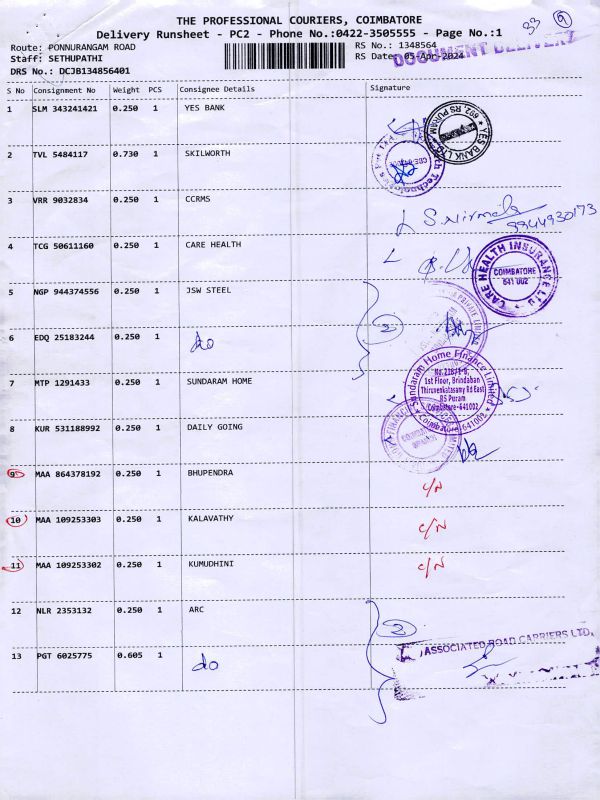 THE PROFESSIONAL COURIERS, COIMBATORE
33 9
Delivery Runsheet - PC2 - Phone No.:0422-3505555 - Page No.:1
Route: PONNURANGAM ROAD RS No.: 1348564
Staff: SETHUPATHI RS Date: 05-Apr-2024
DOCUMENT DELIVERY
DRS No.: DCJB134856401
S No Consignment No Weight PCS Consignee Details Signature
1 SLM 343241421 0.250 1 YES BANK
YES BANK LTD. 602, RS PURAM
2 TVL 5484117 0.730 1 SKILWORTH
3 VRR 9032834 0.250 1 CCRMS
S. Nirmala
9944930173
4 TCG 50611160 0.250 1 CARE HEALTH
CARE HEALTH INSURANCE LTD
COIMBATORE
641 002
5 NGP 944374556 0.250 1 JSW STEEL
6 EDQ 25183244 0.250 1 do
7 MTP 1291433 0.250 1 SUNDARAM HOME
Sundaram Home Finance Limited
1st Floor, Brindaban
Thiruvenkatasamy Rd East
RS Puram
Coimbatore-641002
Coimbatore 641002
8 KUR 531188992 0.250 1 DAILY GOING
9 MAA 864378192 0.250 1 BHUPENDRA C/N
10 MAA 109253303 0.250 1 KALAVATHY C/N
11 MAA 109253302 0.250 1 KUMUDHINI C/N
12 NLR 2353132 0.250 1 ARC
2
ASSOCIATED ROAD CARRIERS LTD.
13 PGT 6025775 0.605 1 do